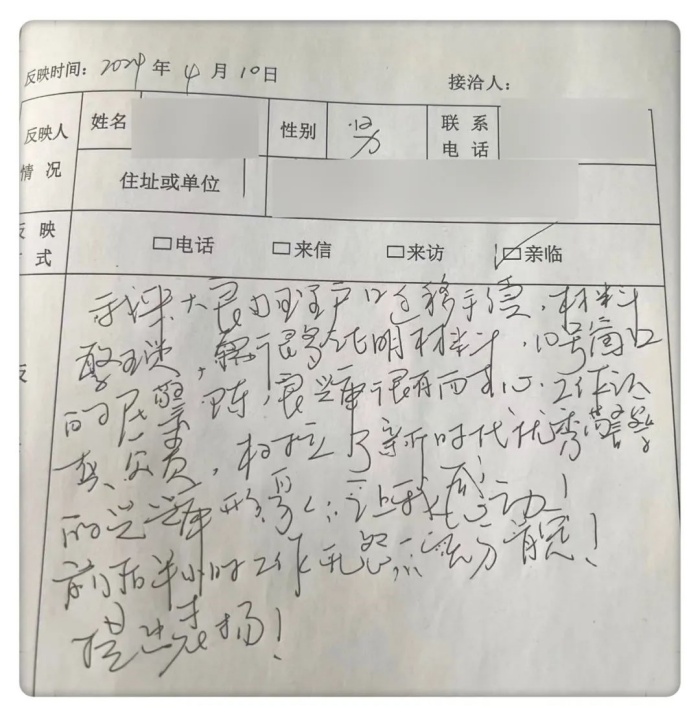 反映时间：2024年4月10日 接洽人：
反映人 姓名 性别 男 联系
情况 电话
住址或单位
反映 □电话 □来信 □来访 □亲临
式
我 办理户口迁移手续，材料
繁琐， 很多证明材料，10号窗口
的民警 陈 很有耐心，工作认
真负责，树立了新时代优秀警察
的 形象 让我感动！
前后半小时工作无怨 
提出表扬！